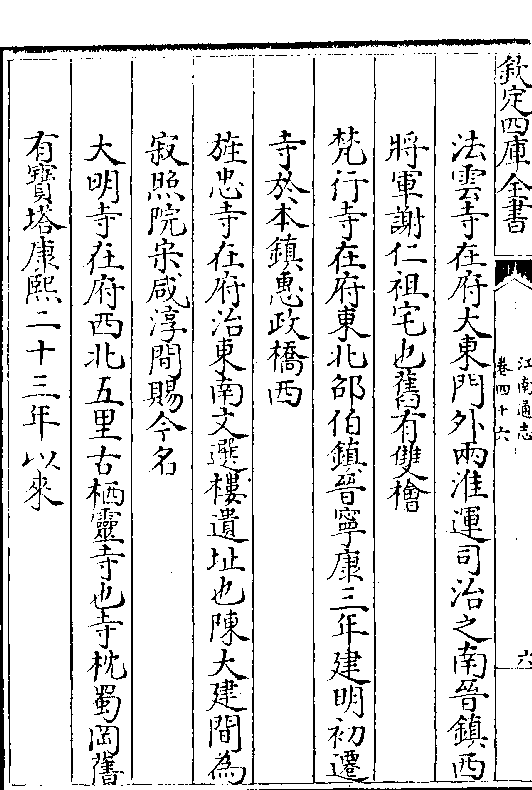 欽定四庫全書
江南通志
卷四十六
六
法雲寺在府大東門外兩淮運司治之南晉鎮西
將軍謝仁祖宅也舊有雙檜
梵行寺在府東北邵伯鎮晉寧康三年建明初遷
寺於本鎮惠政橋西
旌忠寺在府治東南文選樓遺址也陳大建間為
寂照院宋咸淳間賜今名
大明寺在府西北五里古栖靈寺也寺枕蜀岡舊
有寳塔康熙二十三年以來